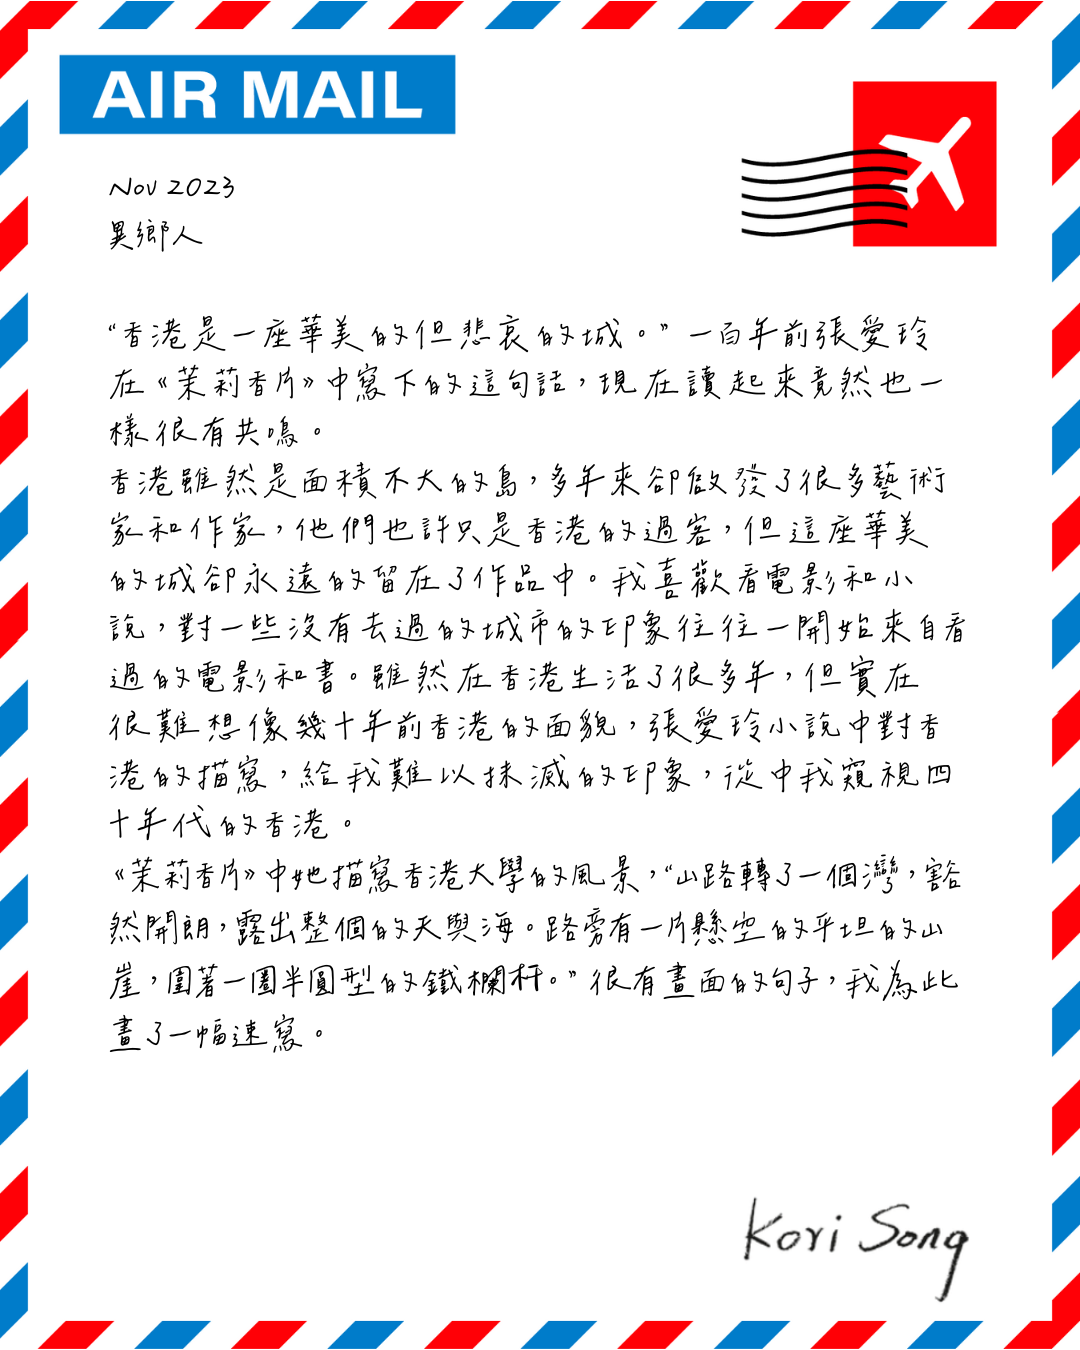 AIR MAIL
Nov 2023
異鄉人
“香港是一座華美的但悲哀的城。”一百年前張愛玲
在《茉莉香片》中寫下的這句話，現在讀起來竟然也一
樣很有共鳴。
香港雖然是面積不大的島，多年來卻啟發了很多藝術
家和作家，他們也許只是香港的過客，但這座華美
的城卻永遠的留在了作品中。我喜歡看電影和小
說，對一些沒有去過的城市的印象往往一開始來自看
過的電影和書。雖然在香港生活了很多年，但實在
很難想像幾十年前香港的面貌，張愛玲小說中對香
港的描寫，給我難以抹滅的印象，從中我窺視四
十年代的香港。
《茉莉香片》中她描寫香港大學的風景，“山路轉了一個灣，豁
然開朗，露出整個的天與海。路旁有一片懸空的平坦的山
崖，圍著一圈半圓型的鐵欄杆。”很有畫面的句子，我為此
畫了一幅速寫。
Kori Song